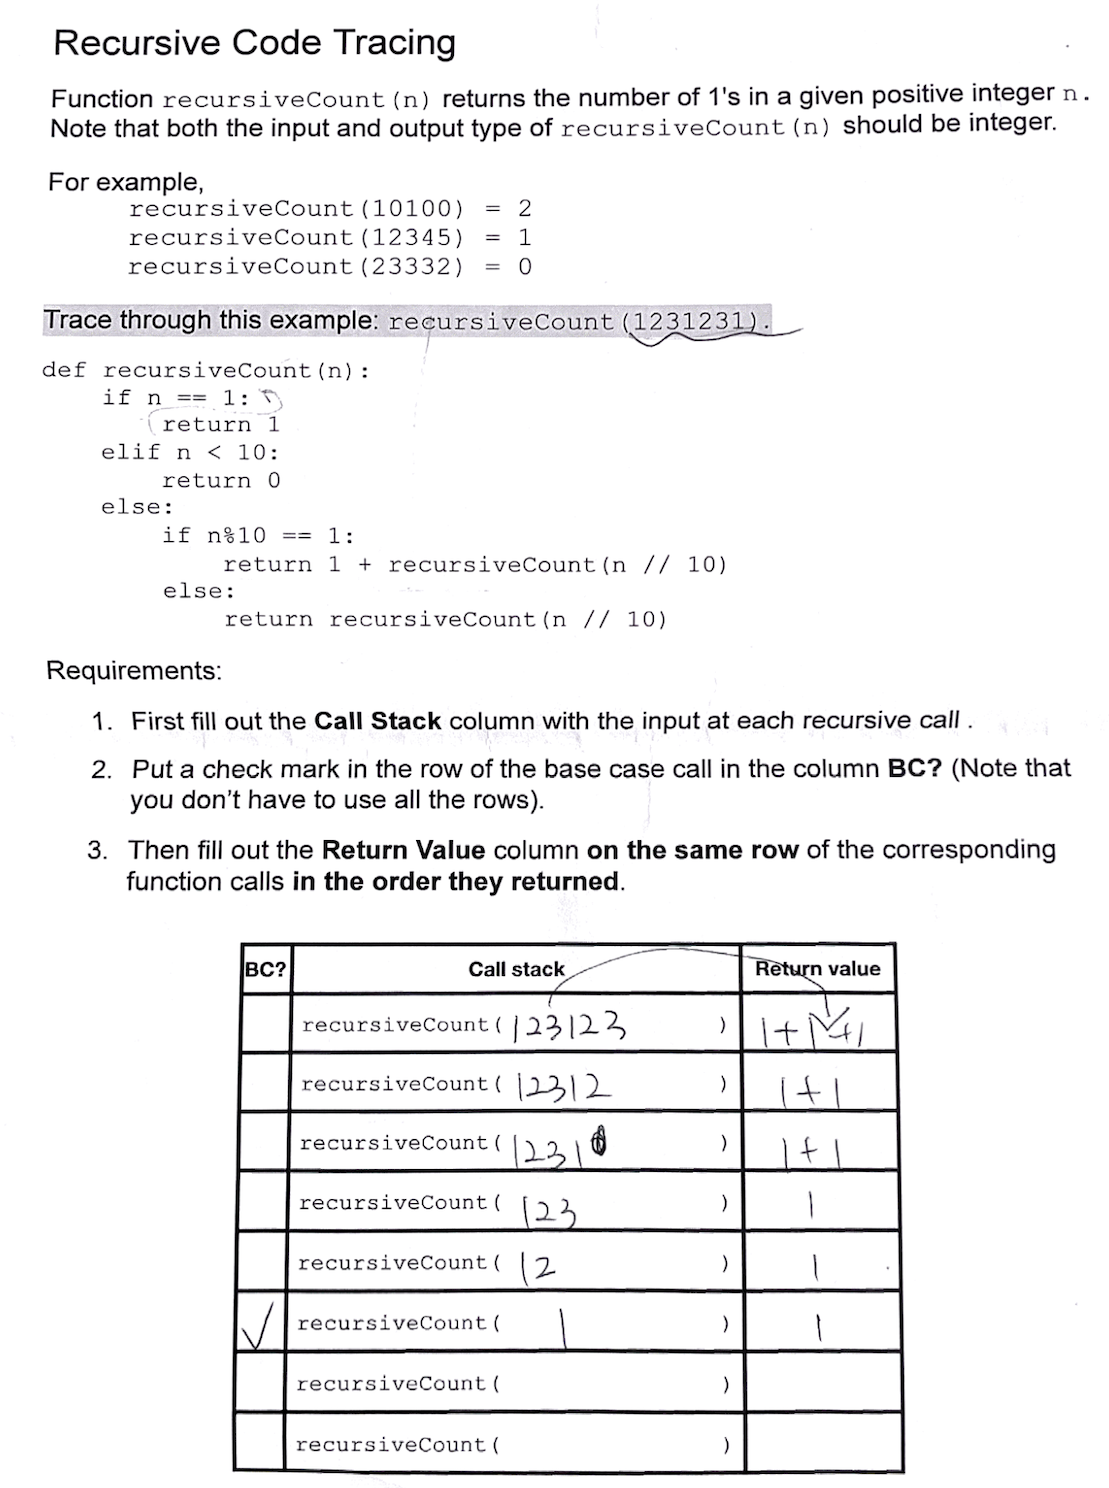 Recursive Code Tracing
Function recursiveCount(n) returns the number of 1's in a given positive integer n.
Note that both the input and output type of recursiveCount(n) should be integer.
For example,
recursiveCount(10100) = 2
recursiveCount(12345) = 1
recursiveCount(23332) = 0
Trace through this example: recursiveCount(1231231).
def recursiveCount(n):
if n == 1:
return 1
elif n < 10:
return 0
else:
if n%10 == 1:
return 1 + recursiveCount(n // 10)
else:
return recursiveCount(n // 10)
Requirements:
1. First fill out the Call Stack column with the input at each recursive call .
2. Put a check mark in the row of the base case call in the column BC? (Note that
you don't have to use all the rows).
3. Then fill out the Return Value column on the same row of the corresponding
function calls in the order they returned.
BC? Call stack Return value
recursiveCount( 123123 ) 1+1+1
recursiveCount( 12312 ) 1+1
recursiveCount( 1231 ) 1+1
recursiveCount( 123 ) 1
recursiveCount( 12 ) 1
✓ recursiveCount( 1 ) 1
recursiveCount( )
recursiveCount( )